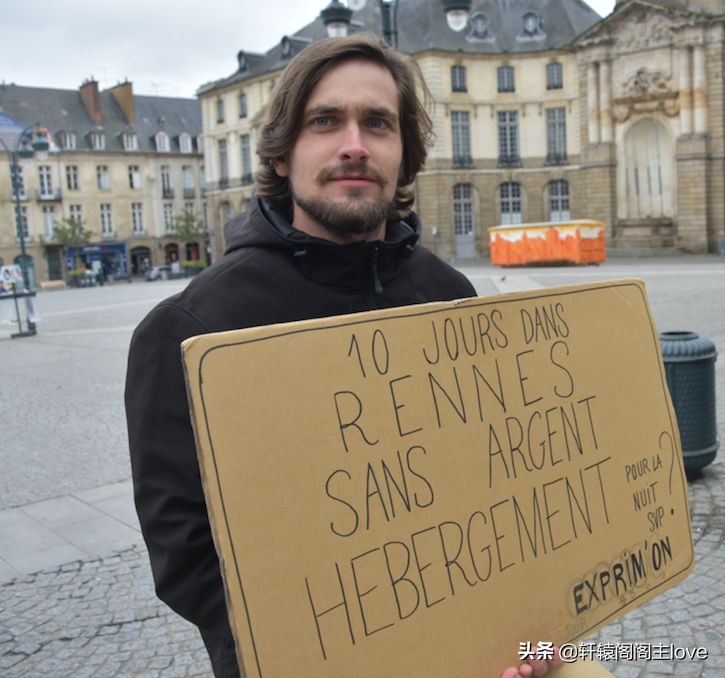 10 JOURS DANS
RENNES
SANS ARGENT
HEBERGEMENT
POUR LA
NUIT
SVP ?
EXPRIM'ON
头条 @轩辕阁阁主love